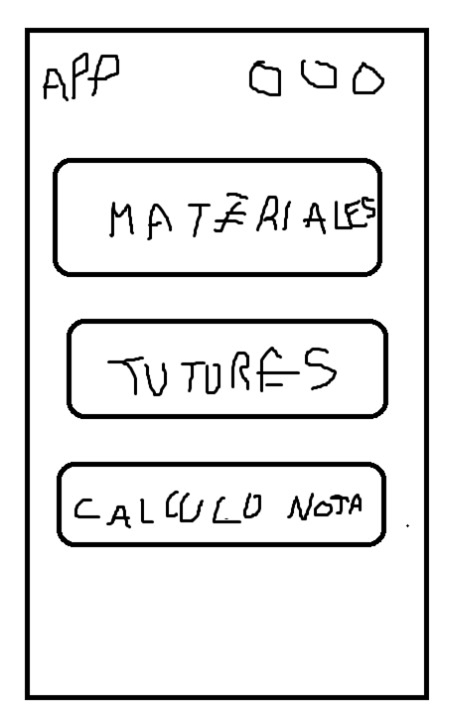 APP
MATERIALES
TUTORES
CALCULO NOTA